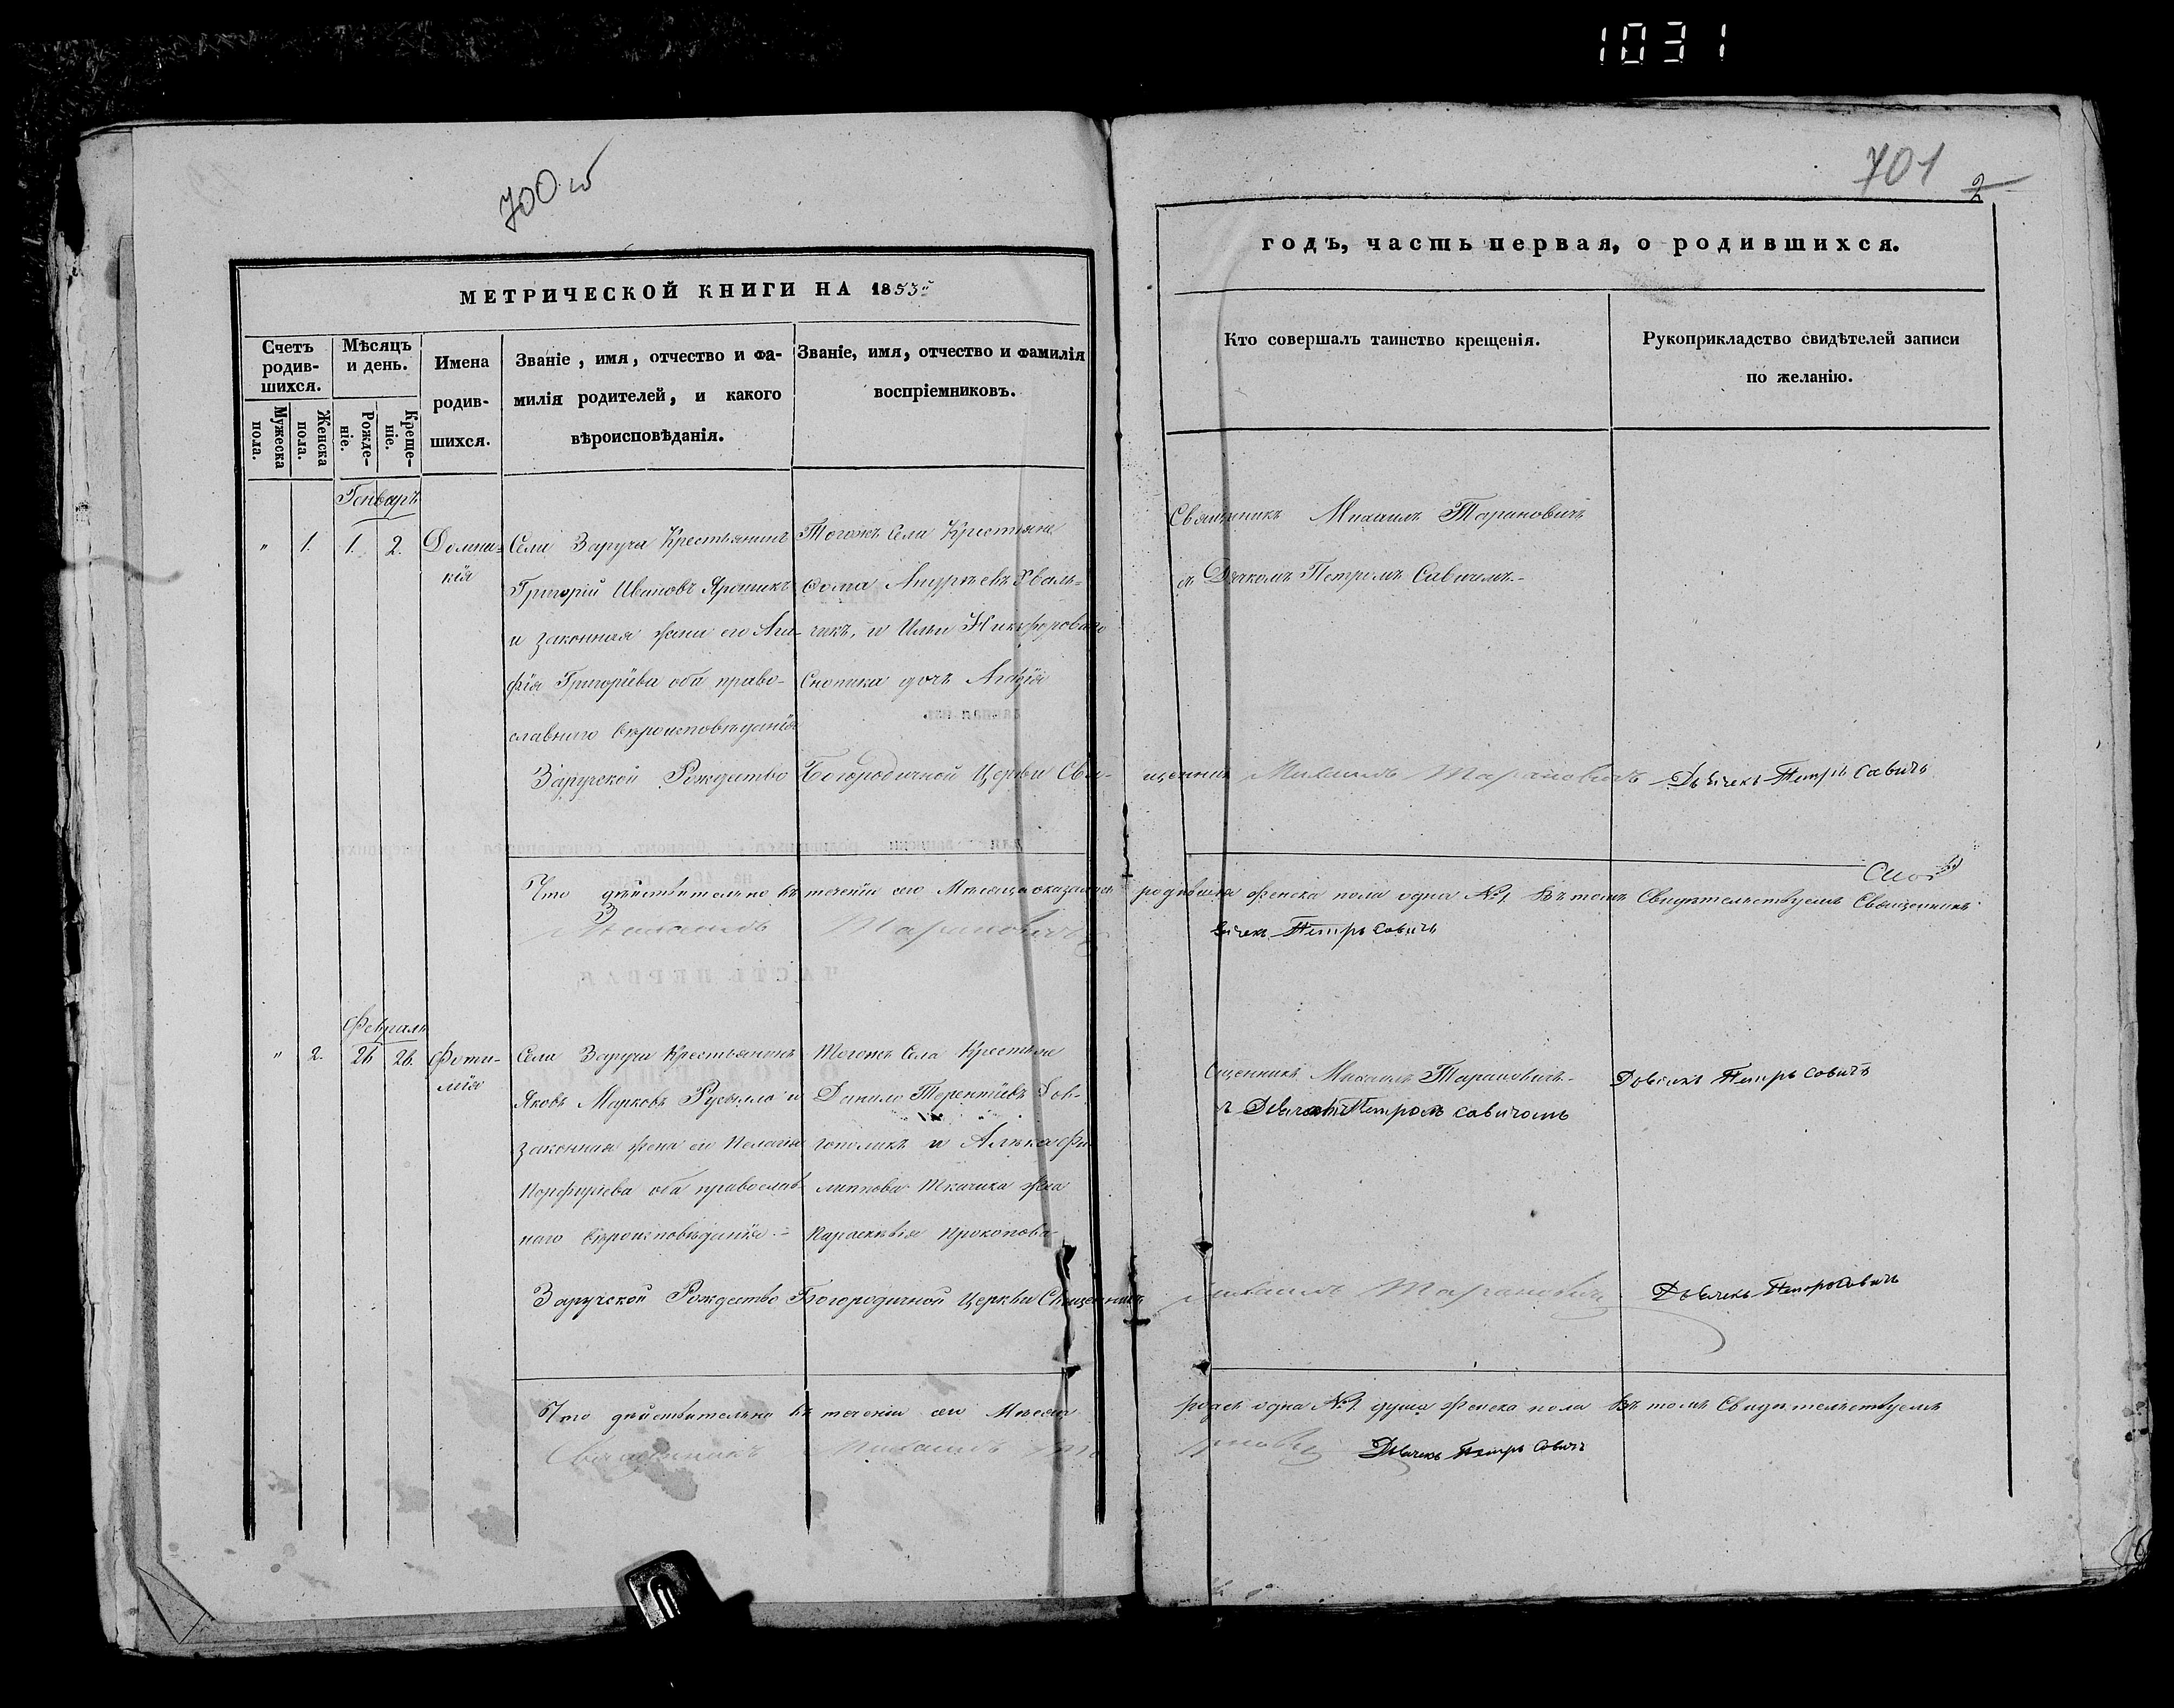 1031
700 об
701
2
МЕТРИЧЕСКОЙ КНИГИ НА 1853й
годъ, часть первая, о родившихся.
Счетъ родив-шихся.
Мужеска пола.
Женска пола.
Мѣсяцъ и день.
Рожде-ніе.
Креще-ніе.
Имена родив-шихся.
Званіе, имя, отчество и фа-
милія родителей, и какого
вѣроисповѣданія.
Званіе, имя, отчество и фамилія
воспріемниковъ.
Кто совершалъ таинство крещенія.
Рукоприкладство свидѣтелей записи
по желанію.
Генваръ
" 1. 1. 2.
Домни-
кія
Села Заруча Крестьянинъ
Григорій Ивановъ
и законная жена его Ага-
фія Григоріева оба право-
славного вѣроисповѣданія
Тогожъ села Крестьяне
Фома
и Ильи Никифорова
дочь
Священникъ Михаилъ Тарановичъ
съ Дьячкомъ Петромъ Савичемъ.-
Заручской Рождество Богородичной Церкви Свя-
щенникъ Михаилъ Тарановичъ Дьячекъ Петръ Савичъ
Что дѣйствительно въ теченіи сего Мѣсяца оказалась
родившихся женска пола одна №1. Въ томъ Свидѣтельствуемъ Священникъ
Михаилъ Тарановичъ
Петръ Савичъ
Февраль
" 2. 26 26.
Села Заруча Крестьянинъ
Яковъ Марковъ и
законная жена его Пелагія
Порфирiева оба православ
ного вѣроисповѣданія.-
Тогожъ Села Крестьяне
Данило Терентіевъ Дов-
и Фи
липпова Ткачика жена
Параскевія Прокопова
Михаилъ Тарановичъ.
Петромъ Савичомъ
Петръ Савичъ
Заручской Рождество Богородичной Церкви Священникъ
Михаилъ Тарановичъ Дьячекъ Петръ Савичъ
Что дѣйствительно въ теченіи сего Мѣсяца
одна №1. душа женска пола Въ томъ Свидѣтельствуемъ
Священникъ Михаилъ Та
рановичъ Дьячекъ Петръ Савичъ